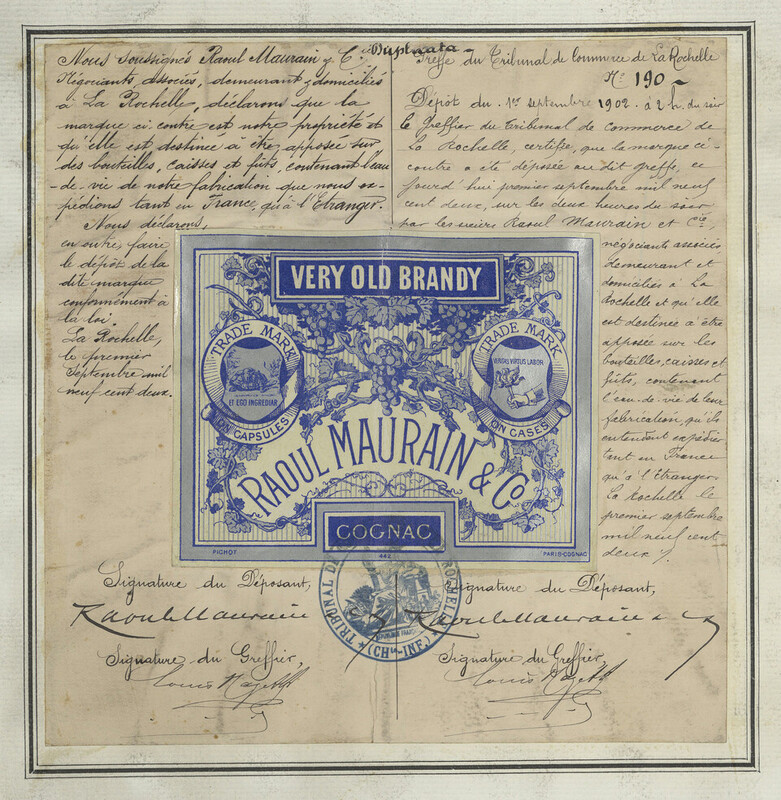 Duplicata
Nous soussignés Raoul Maurain & Cie,
Négociants, associés, demeurant & domiciliés
à La Rochelle, déclarons que la
marque ci-contre est notre propriété et
qu'elle est destinée à être apposée sur
des bouteilles, caisses et fûts, contenant l'eau
-de-vie de notre fabrication que nous ex-
pédions tant en France, qu'à l'Etranger.
Nous déclarons,
en outre, faire
le dépôt de la
dite marque
conformément à
la loi.
La Rochelle,
le premier
Septembre mil
neuf cent deux.
Greffe du Tribunal de Commerce de La Rochelle
No 190
Dépôt du 1er septembre 1902 à 2 h. du soir
le Greffier du Tribunal de Commerce de
La Rochelle, certifie, que la marque ci-
contre a été déposée au dit greffe, ce
jourd'hui premier septembre mil neuf
cent deux, sur les deux heures du soir
par les sieurs Raoul Maurain et Cie,
négociants associés
demeurant et
domiciliés à La
Rochelle et qu'elle
est destinée à être
apposée sur les
bouteilles, caisses et
fûts, contenant
l'eau-de-vie de leur
fabrication, qu'ils
entendent expédier
tant en France
qu'à l'Etranger.
La Rochelle le
premier septembre
mil neuf cent
deux
VERY OLD BRANDY
TRADE MARK
ET EGO INGREDIAR
ON CAPSULES
TRADE MARK
VERITAS VIRTUS LABOR
ON CASES
RAOUL MAURAIN & Co
COGNAC
PICHOT
442
PARIS-COGNAC
TRIBUNAL DE
ROCHELLE
REPUBLIQUE FRANC
(CHte-INF.)
Signature du Déposant,
Raoul Maurain
Signature du Greffier,
Louis
Signature du Déposant,
Raoul Maurain &
Signature du Greffier,
Louis